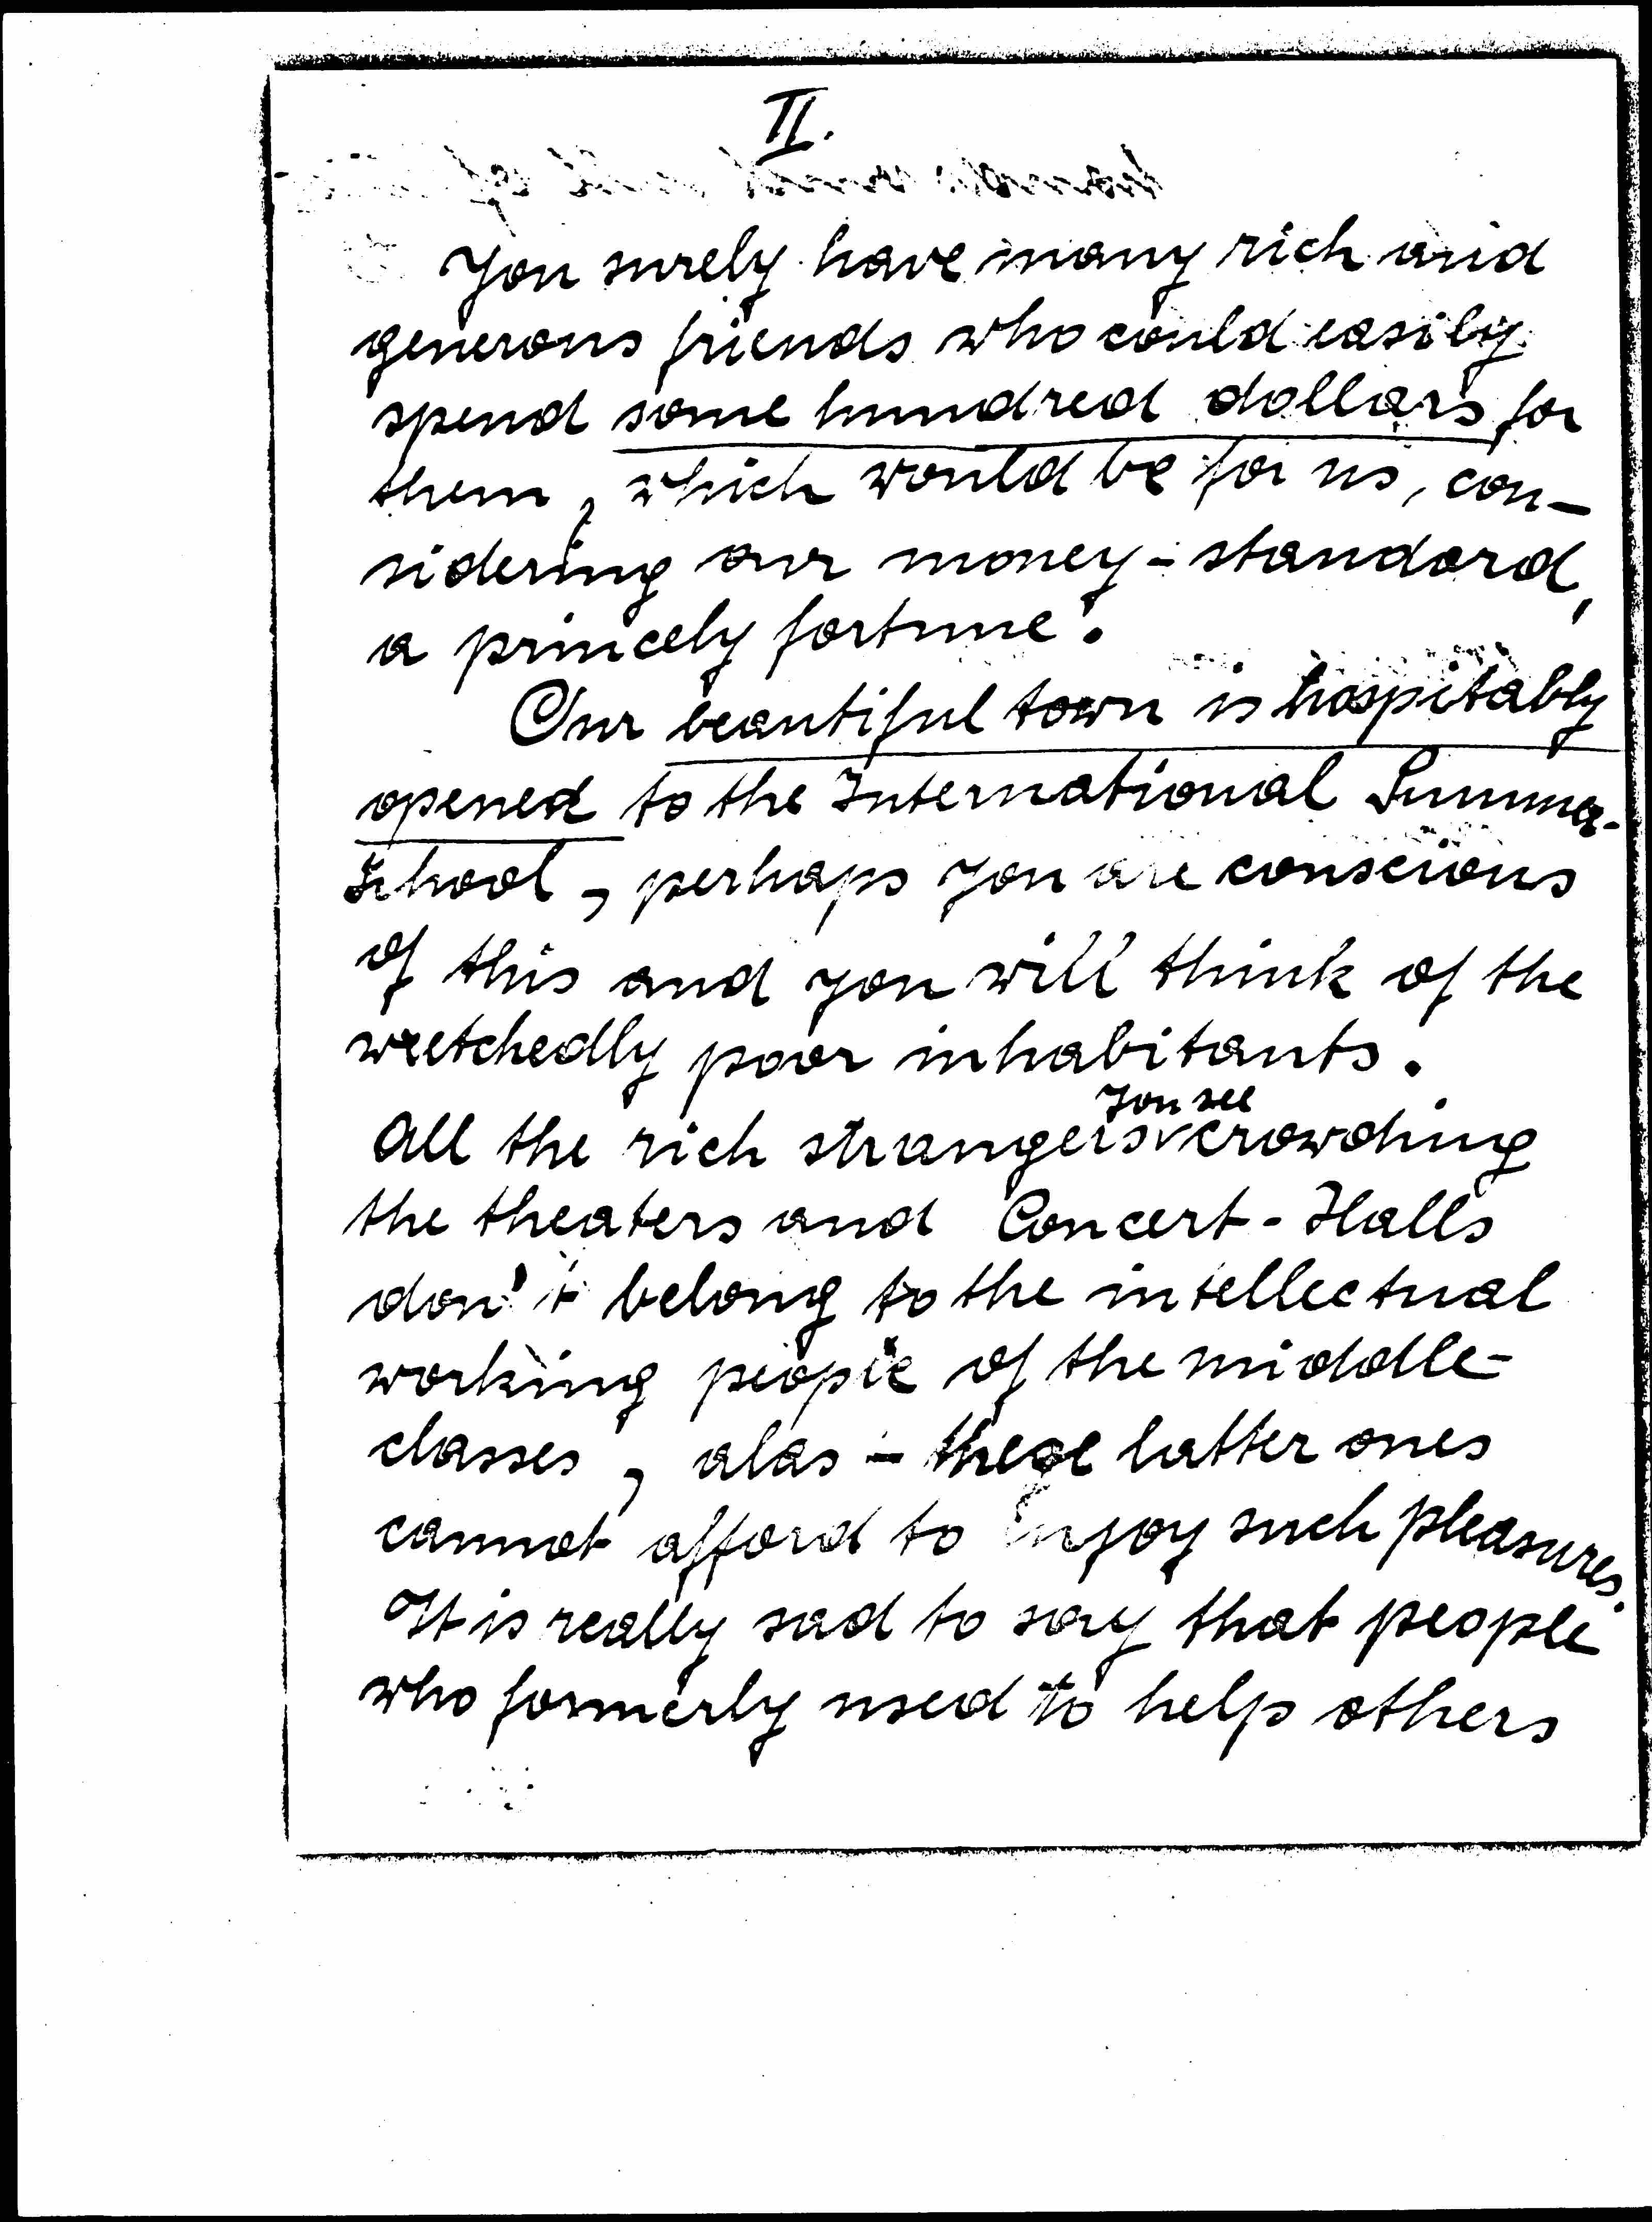 II.
You surely have many rich and
generous friends who could easily
spend some hundred dollars for
them, which would be for us, con-
sidering our money-standard,
a princely fortune.
Our beautiful town is hospitably
opened to the International Summer-
School, perhaps you are conscious
of this and you will think of the
wretchedly poor inhabitants.
You see
All the rich strangers crowding
the theaters and Concert-Halls
don't belong to the intellectual
working people of the middle-
classes, alas - these latter ones
cannot afford to enjoy such pleasures.
It is really sad to say that people
who formerly used to help others